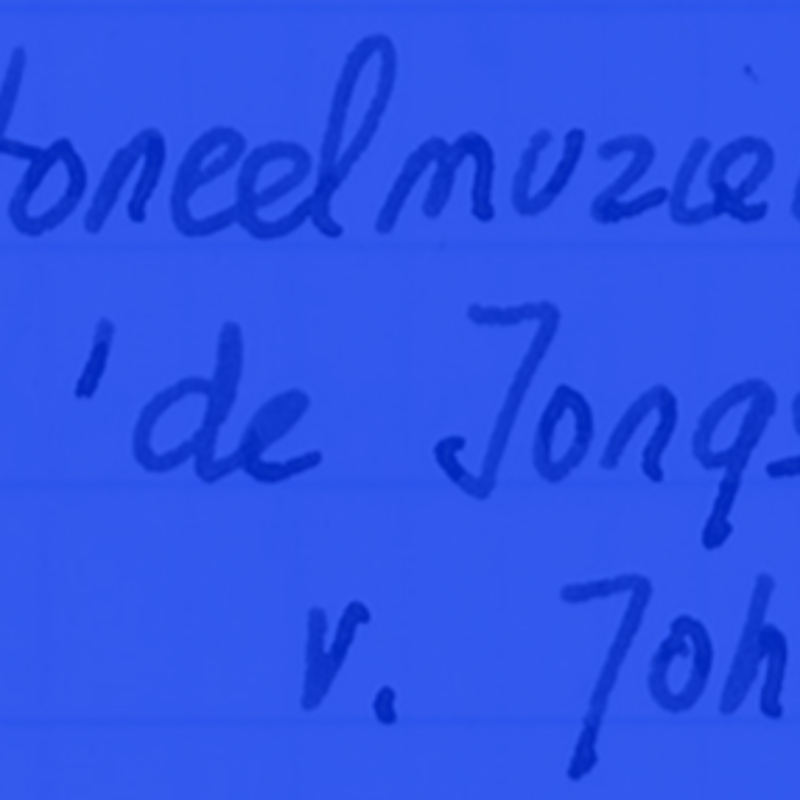 toneelmuziek
'de Jongs
v. Joh